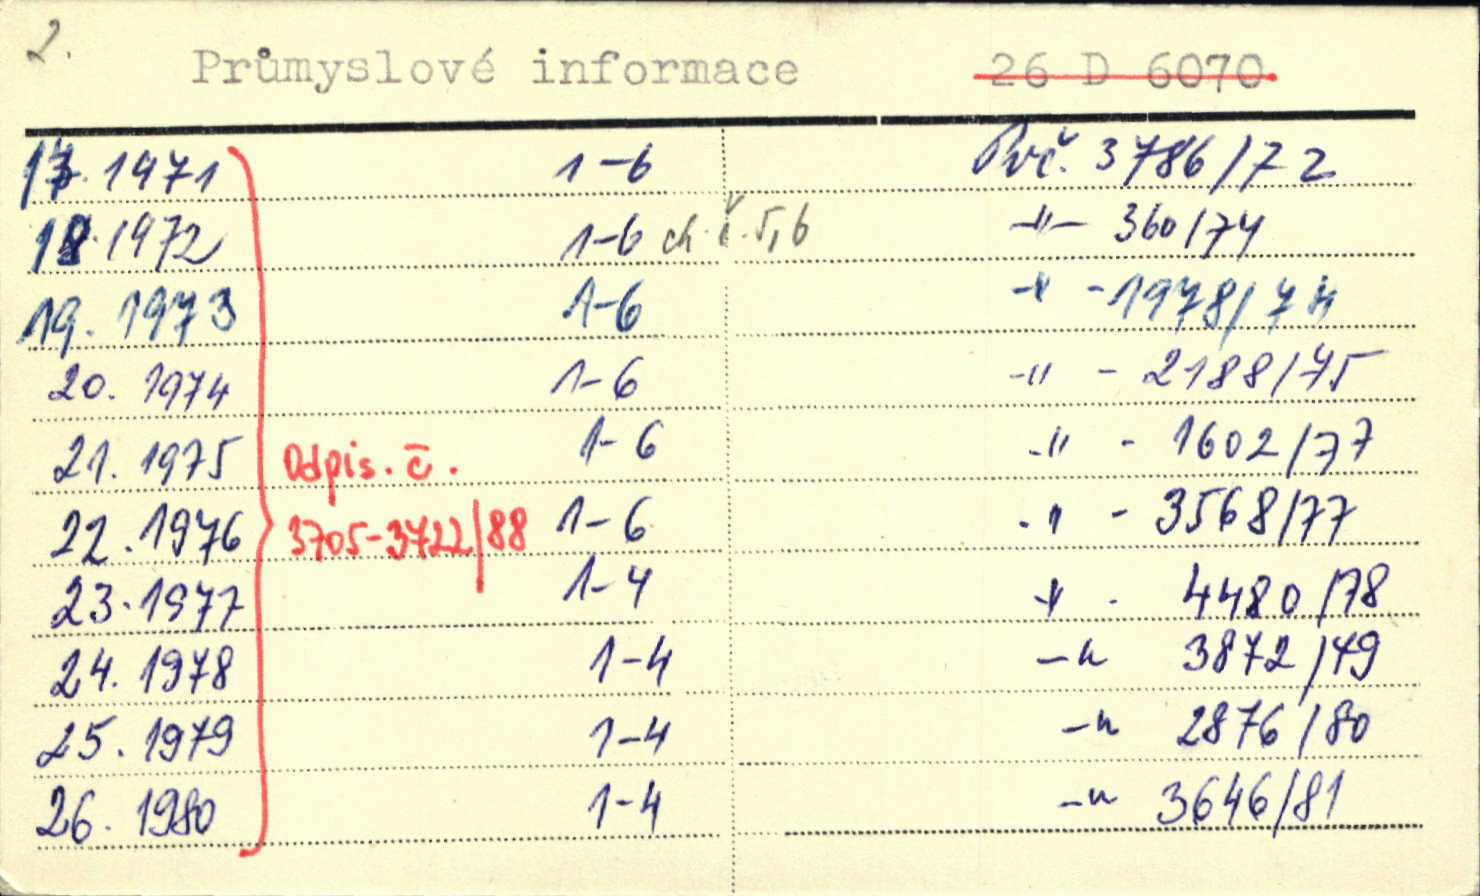 2.
Průmyslové informace 26 D 6070
17. 1971 1-6 Přič. 3786/72
18. 1972 1-6 ch. č. 5,6 -"- 360/74
19. 1973 1-6 -"- 1978/74
20. 1974 1-6 -"- 2188/75
21. 1975 1-6 -"- 1602/77
Odpis. č.
22. 1976 1-6 -"- 3568/77
3705-3722/88
23. 1977 1-4 -"- 4480/78
24. 1978 1-4 -"- 3872/79
25. 1979 1-4 -"- 2876/80
26. 1980 1-4 -"- 3646/81